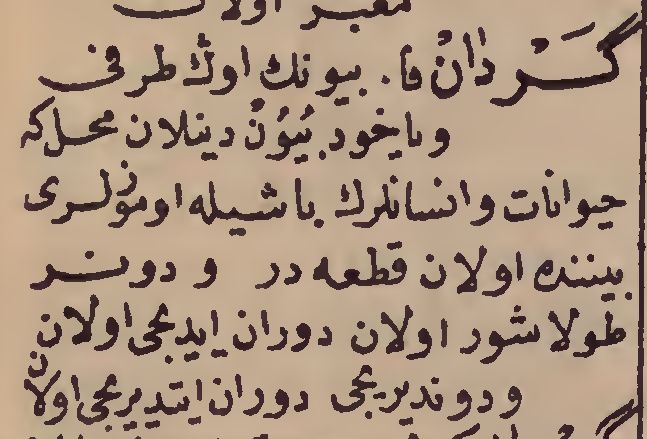 معبر اولان
گَرْدَانْ فا. بیونك اوڭ طرفی
ویاخود بُیُونْ دینلان محلکه
حیوانات وانسانلرك باشیله اوموزلری
بیننده اولان قطعه در و دونر
طولاشور اولان دوران ایدیجی اولان
ودوندیریجی دوران ایتدیریجی اولان